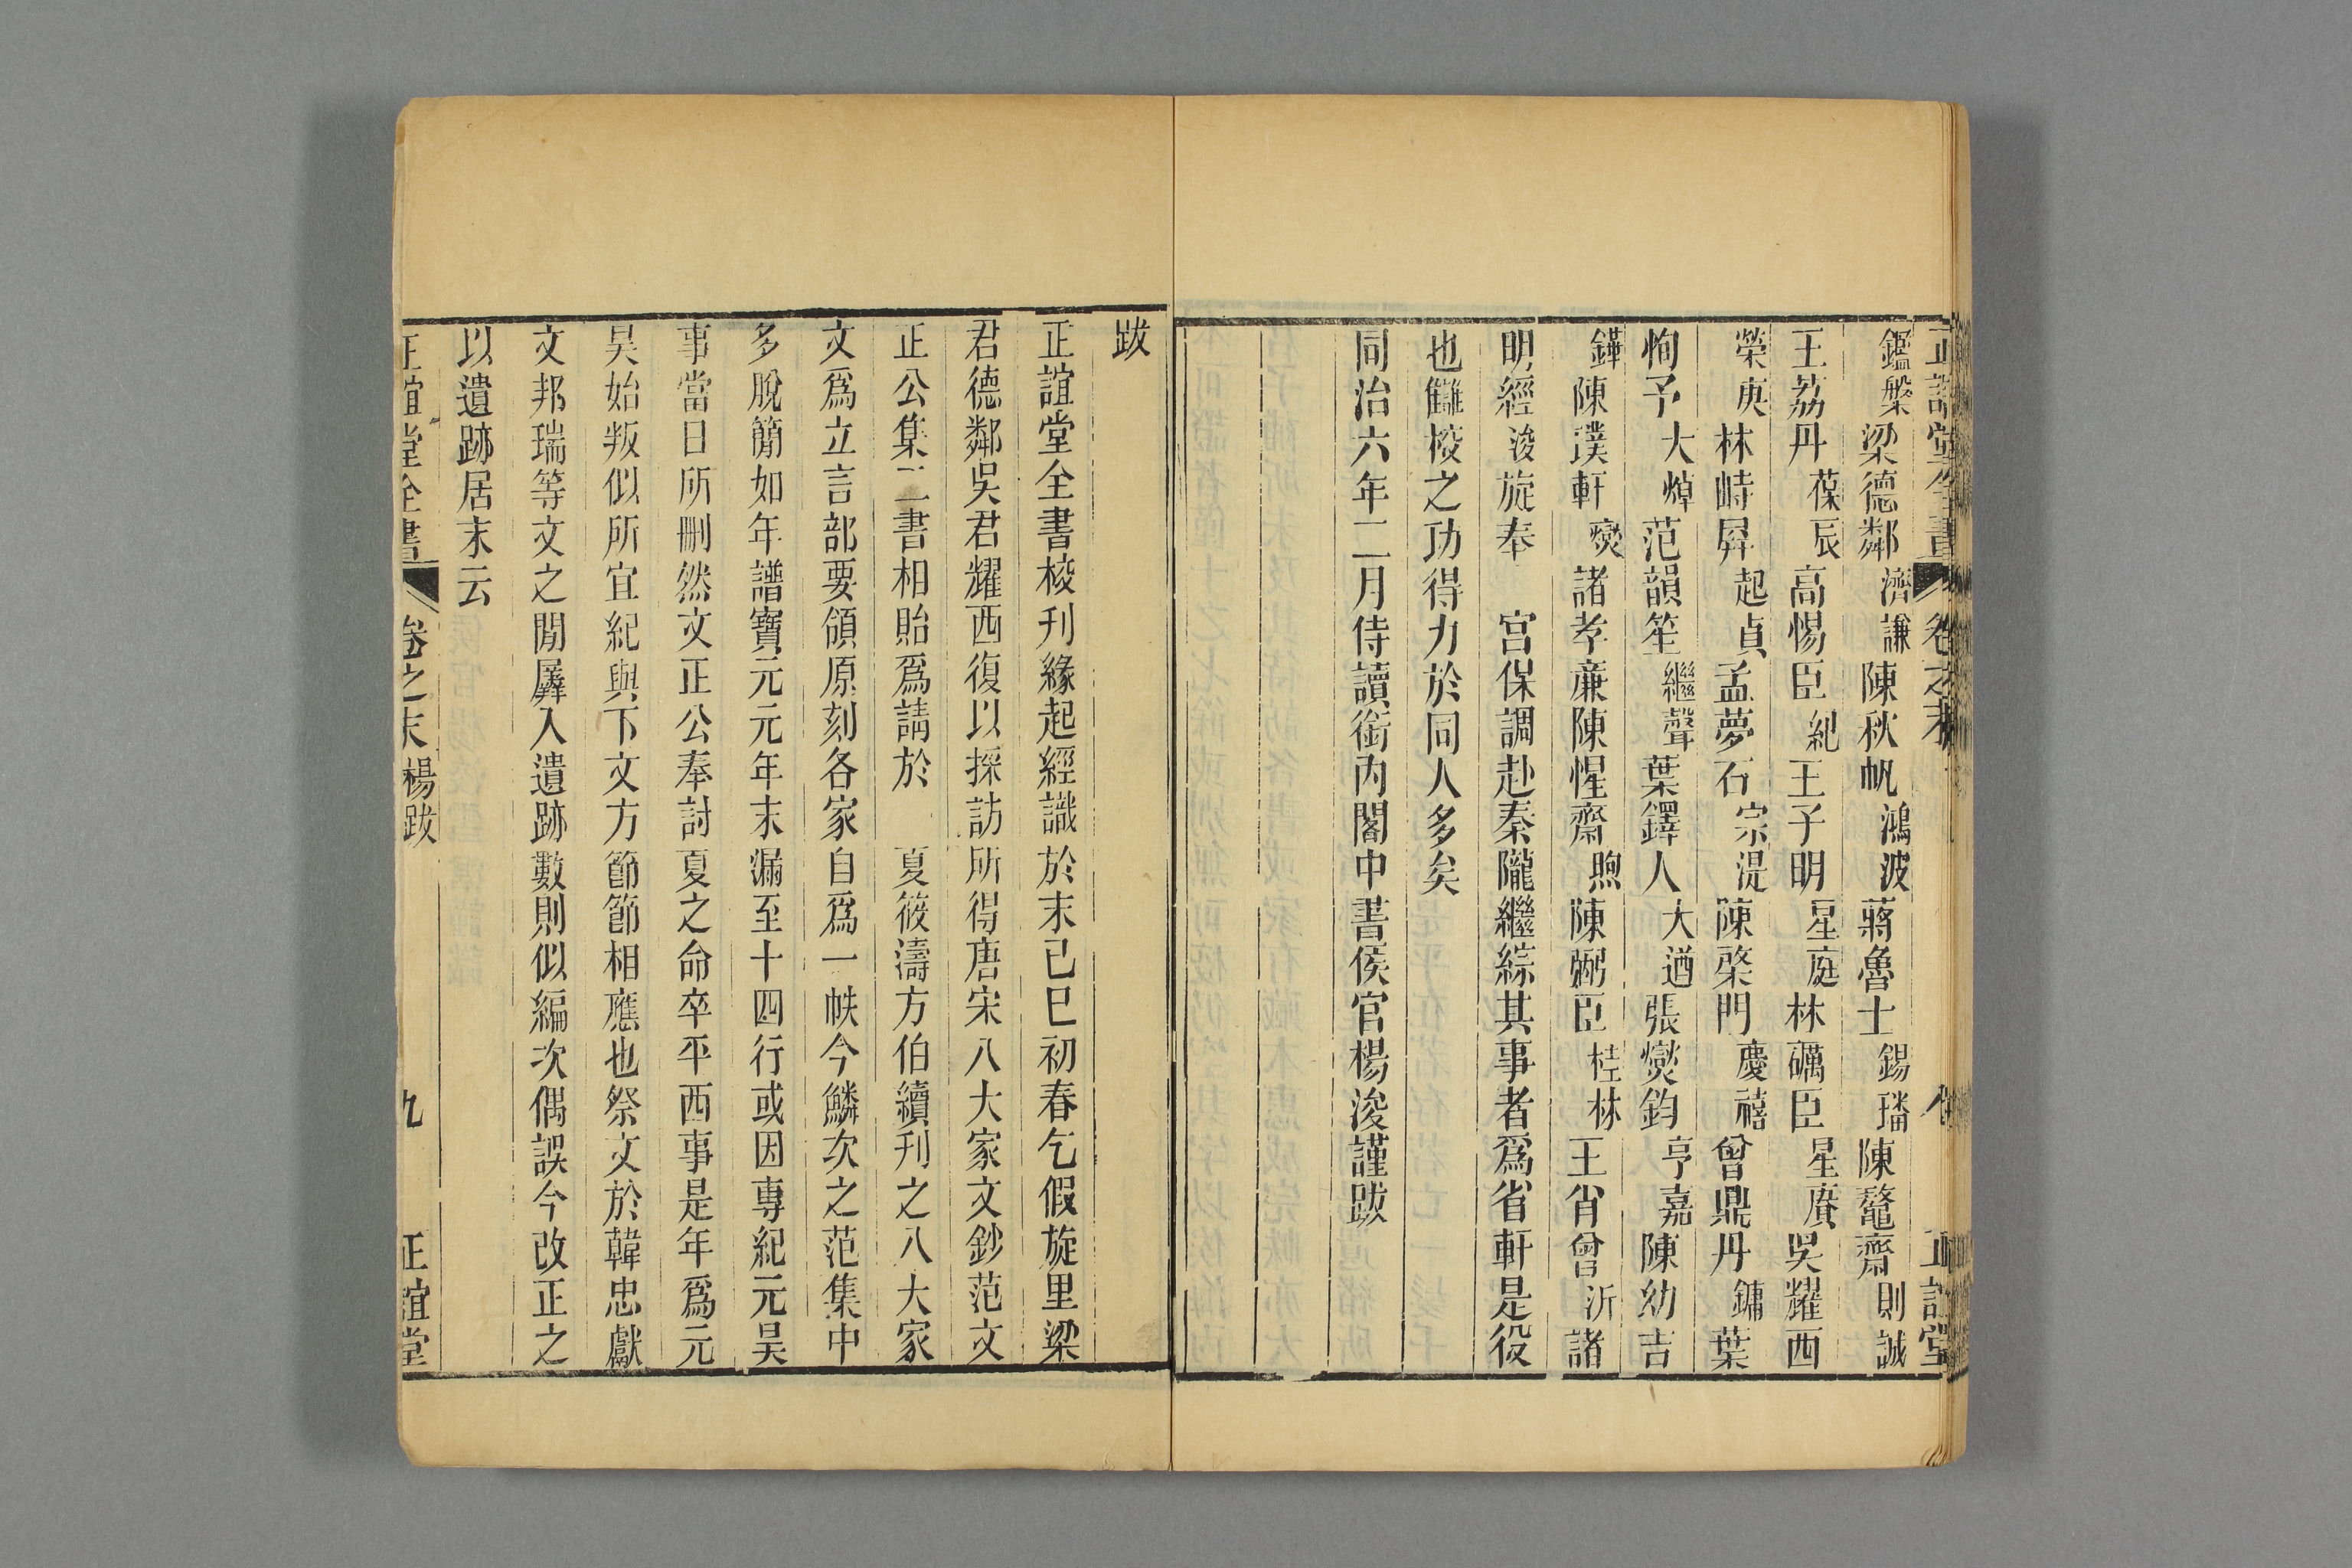 正誼堂全書 卷之末 正誼堂
鑑槃梁德鄰濟謙陳秋帆鴻波蔣魯士錫璠陳鼇齋則誠
王荔丹葆辰高惕臣紀王子明星庭林礪臣星賡吳耀西
榮庚林崎屏起貞孟夢石宗湜陳棨門慶禧曾鼎丹鏞葉
恂予大焯范韻笙繼聲葉鐸人大遒張燮鈞亨嘉陳幼吉
鏵陳璞軒燮諸孝廉陳惺齋煦陳弼臣桂林王肖曾沂諸
明經浚旋奉 宮保調赴秦隴繼綜其事者爲省軒是役
也讎校之功得力於同人多矣
同治六年二月侍讀銜內閣中書侯官楊浚謹跋
跋
正誼堂全書校刋緣起經識於末己巳初春乞假旋里梁
君德鄰吳君耀西復以採訪所得唐宋八大家文鈔范文
正公集二書相貽爲請於 夏筱濤方伯續刋之八大家
文爲立言部要領原刻各家自爲一帙今鱗次之范集中
多脫簡如年譜寶元元年末漏至十四行或因專紀元昊
事當日所刪然文正公奉討夏之命卒平西事是年爲元
昊始叛似所宜紀與下文方節節相應也祭文於韓忠獻
文邦瑞等文之閒羼入遺跡數則似編次偶誤今改正之
以遺跡居末云
正誼堂全書 卷之末 楊跋 九 正誼堂